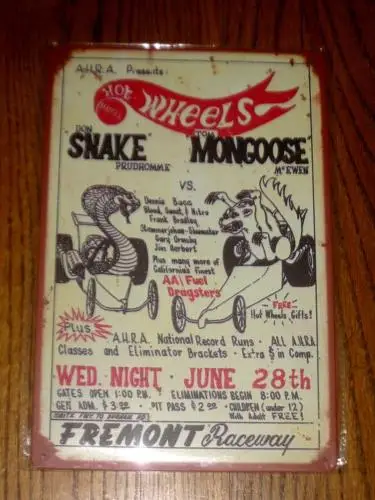 A.H.R.A. Presents
HOT WHEELS
DON "TOM
SNAKE" MONGOOSE"
PRUDHOMME McEWEN
VS.
Dennis Baca
Blood, Sweat, & Nitro
Frank Bradley
Gary Ormsby
Jim Herbert
Plus many more of
California's Finest
AA/Fuel
Dragsters
FREE
Hot Wheels Gifts!
Plus
A.H.R.A. National Record Runs · ALL A.H.R.A
Classes and Eliminator Brackets · Extra $ in Comp.
WED. NIGHT · JUNE 28th
GATES OPEN 1:00 P.M. ELIMINATIONS BEGIN 8:00 P.M.
GEN ADM. $3.00 · PIT PASS $2.00 · CHILDREN (under 12)
With Adult FREE!
FREMONT Raceway